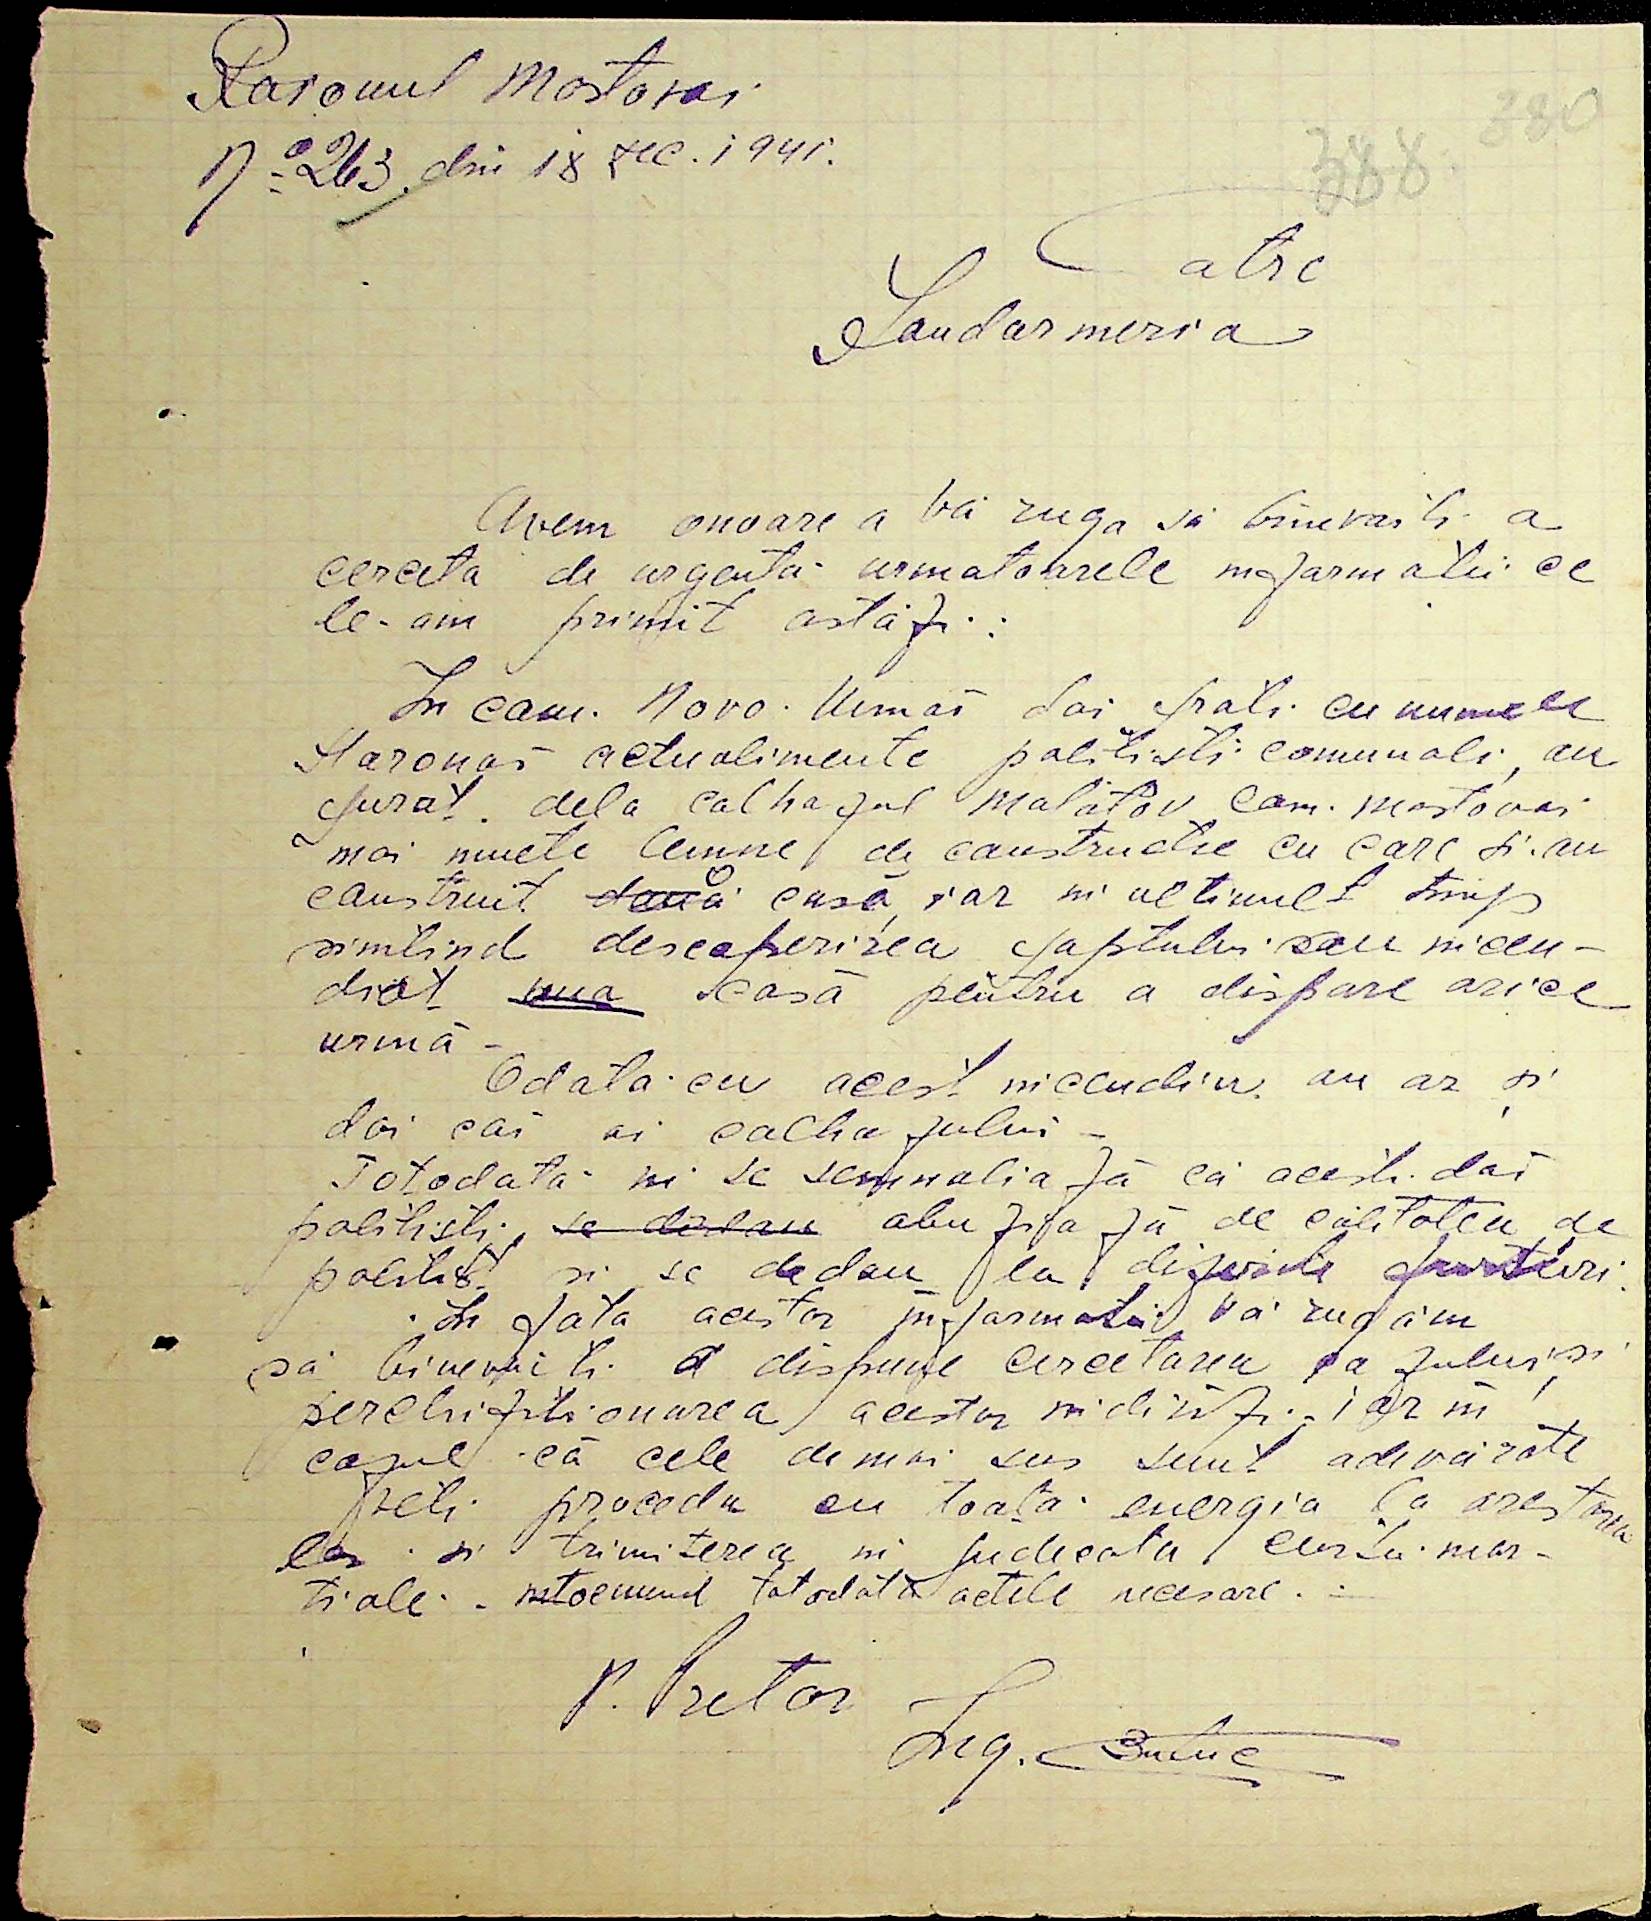 Raionul Mostovoi
No 263 din 18 Dec. 1941.
388. 380
Catre
Jandarmeria
Avem onoare a vă ruga să binevoiti a
cerceta de urgentă urmatoarele informatii ce
le-am primit astăzi:
In com. Novo. Umań doi frati cu numele
actualimente politisti comunali, au
furat dela colhozul Malatov com. Mostovoi
mai multe lemne de constructie cu care si-au
construit două o casă, iar in ultimult timp
simtind descoperirea faptului sau incen-
diat una casă pentru a dispare orice
urmă -
Odata cu acest incendiu au ar si
doi cai ai colhozului -
Totodată ni se semnaliază că acesti doi
politisti, se dedau abuziază de calitatea de
politist si se dedau la diferite furturi.
In fata acestor informatii vă rugăm
să binevoiti a dispune cercetarea cazului, si
perchizitionarea acestor indivizi, iar in
cazul că cele de mai sus sunt adevărate
veti proceda cu toată energia la arestarea
lor si trimiterea in judecata curtii mar-
tiale. - intocmind totodată actele necesare. -
P. Pretor
Ing.